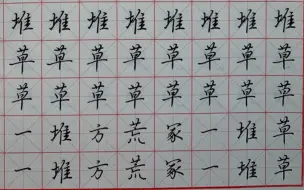 堆堆堆堆堆堆堆堆
草草草草草草草草
草草草草草草草草
一堆方荒冢一堆草
一堆方荒冢一堆草